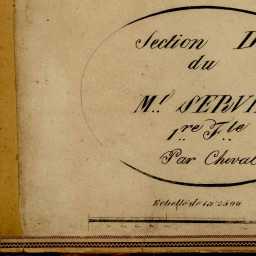 Section D
du
M.l SERVI
1.re F.lle
Par Cheval
Echelle de 1 à 2500